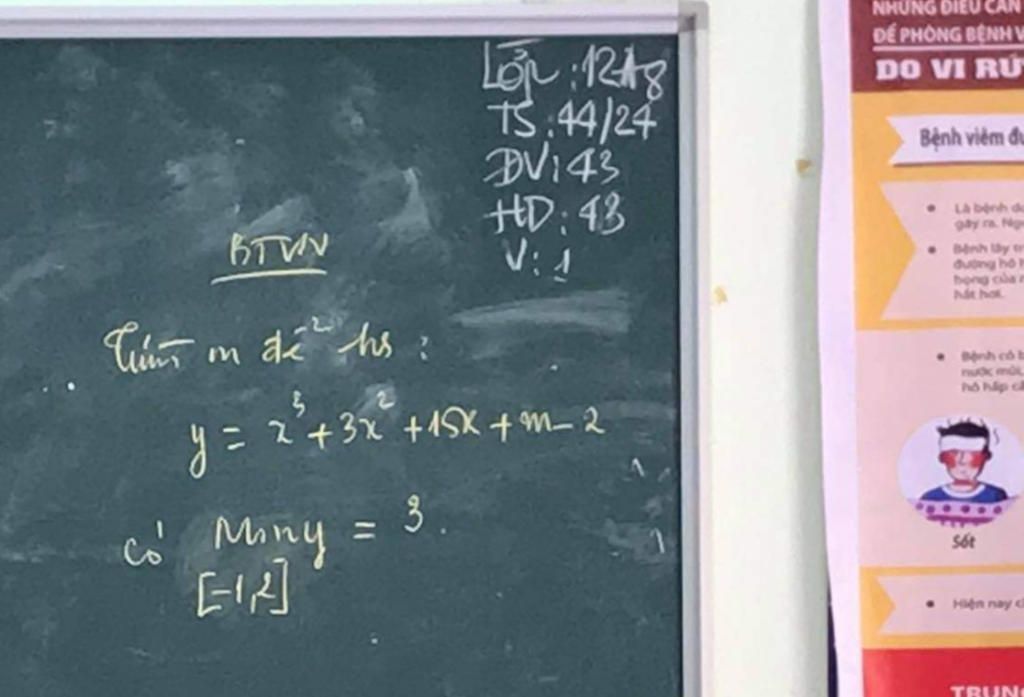 Lớp: 12A8
TS: 44/24
DV: 43
HD: 43
V: 1
BTVN
Tìm m để hs:
y = x³ + 3x² + 15x + m - 2
có Min y = 3.
[-1,2]
NHỮNG ĐIỀU CẦN
ĐỂ PHÒNG BỆNH V
DO VI RÚ
Bệnh viêm đư
• Là bệnh do
gây ra.
• Bệnh lây tr
đường hô h
họng của
hắt hơi.
• Bệnh có b
nước mũi,
hô hấp cấ
Sốt
• Hiện nay c
TRUN